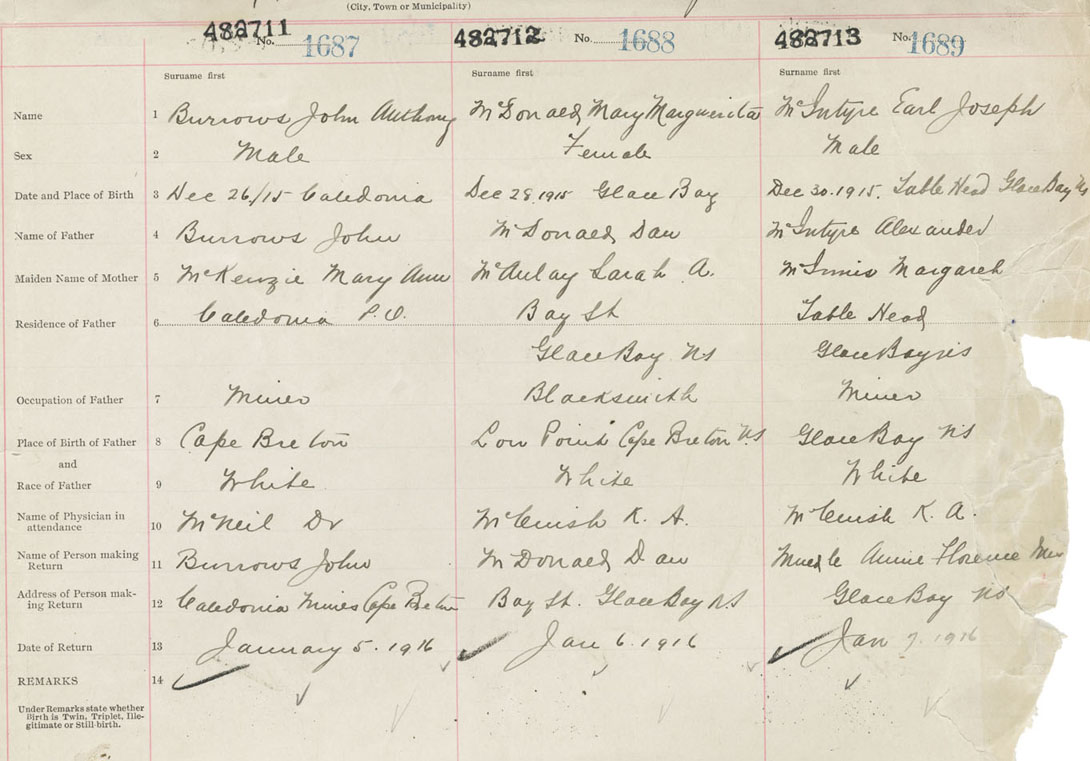 (City, Town or Municipality)
482711 No. 1687 482712 No. 1688 482713 No. 1689
Surname first Surname first Surname first
Name 1 Burrows John Anthony McDonald Mary Marguerita McIntyre Earl Joseph
Sex 2 Male Female Male
Date and Place of Birth 3 Dec 26/15 Caledonia Dec 28, 1915 Glace Bay Dec 30. 1915. Table Head Glace Bay NS
Name of Father 4 Burrows John McDonald, Dan McIntyre Alexander
Maiden Name of Mother 5 McKenzie Mary Ann McAulay Sarah A. McInnis Margaret
Residence of Father 6 Caledonia P.O. Bay St Table Head
Glace Bay NS Glace Bay NS
Occupation of Father 7 Miner Blacksmith Miner
Place of Birth of Father 8 Cape Breton Low Point Cape Breton NS Glace Bay NS
and
Race of Father 9 White White White
Name of Physician in
attendance 10 McNeil Dr K. A. K. A.
Name of Person making
Return 11 Burrows John McDonald, Dan Annie Florence
Address of Person mak-
ing Return 12 Caledonia Mines Cape Breton Bay St. Glace Bay NS Glace Bay NS
Date of Return 13 January 5. 1916 Jan 6. 1916 Jan 1916
REMARKS 14
Under Remarks state whether
Birth is Twin, Triplet, Ille-
gitimate or Still-birth.